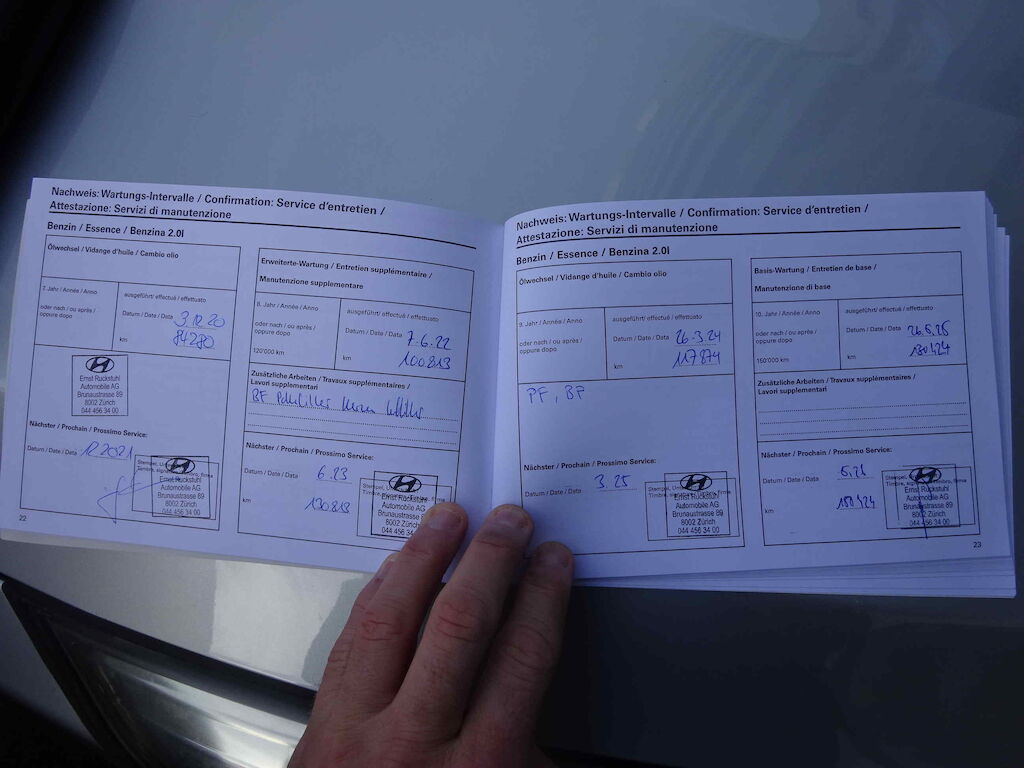 Nachweis: Wartungs-Intervalle / Confirmation: Service d'entretien /
Attestazione: Servizi di manutenzione
Benzin / Essence / Benzina 2.0l
Ölwechsel / Vidange d'huile / Cambio olio
7. Jahr / Année / Anno
oder nach / ou après /
oppure dopo
ausgeführt / effectué / effettuato
Datum / Date / Data 3.12.20
km 84280
Ernst Ruckstuhl
Automobile AG
Brunaustrasse 89
8002 Zürich
044 456 34 00
Nächster / Prochain / Prossimo Service:
Datum / Date / Data 12.2021
Ernst Ruckstuhl
Automobile AG
Brunaustrasse 89
8002 Zürich
044 456 34 00
22
Erweiterte-Wartung / Entretien supplémentaire /
Manutenzione supplementare
8. Jahr / Année / Anno
oder nach / ou après /
oppure dopo
120'000 km
ausgeführt / effectué / effettuato
Datum / Date / Data 7.6.22
km 100813
Zusätzliche Arbeiten / Travaux supplémentaires /
Lavori supplementari
BF
Nächster / Prochain / Prossimo Service:
Datum / Date / Data 6.23
km 130813
Ernst Ruckstuhl
Automobile AG
Brunaustrasse 89
8002 Zürich
044 456 34 00
Nachweis: Wartungs-Intervalle / Confirmation: Service d'entretien /
Attestazione: Servizi di manutenzione
Benzin / Essence / Benzina 2.0l
Ölwechsel / Vidange d'huile / Cambio olio
9. Jahr / Année / Anno
oder nach / ou après /
oppure dopo
ausgeführt / effectué / effettuato
Datum / Date / Data 26.3.24
km 117874
PF, BF
Nächster / Prochain / Prossimo Service:
Datum / Date / Data 3.25
Ernst Ruckstuhl
Automobile AG
Brunaustrasse 89
8002 Zürich
044 456 34 00
Basis-Wartung / Entretien de base /
Manutenzione di base
10. Jahr / Année / Anno
oder nach / ou après /
oppure dopo
150'000 km
ausgeführt / effectué / effettuato
Datum / Date / Data
km 130424
Zusätzliche Arbeiten / Travaux supplémentaires /
Lavori supplementari
Nächster / Prochain / Prossimo Service:
Datum / Date / Data 5.26
km 150424
Ernst Ruckstuhl
Automobile AG
Brunaustrasse 89
8002 Zürich
044 456 34 00
23